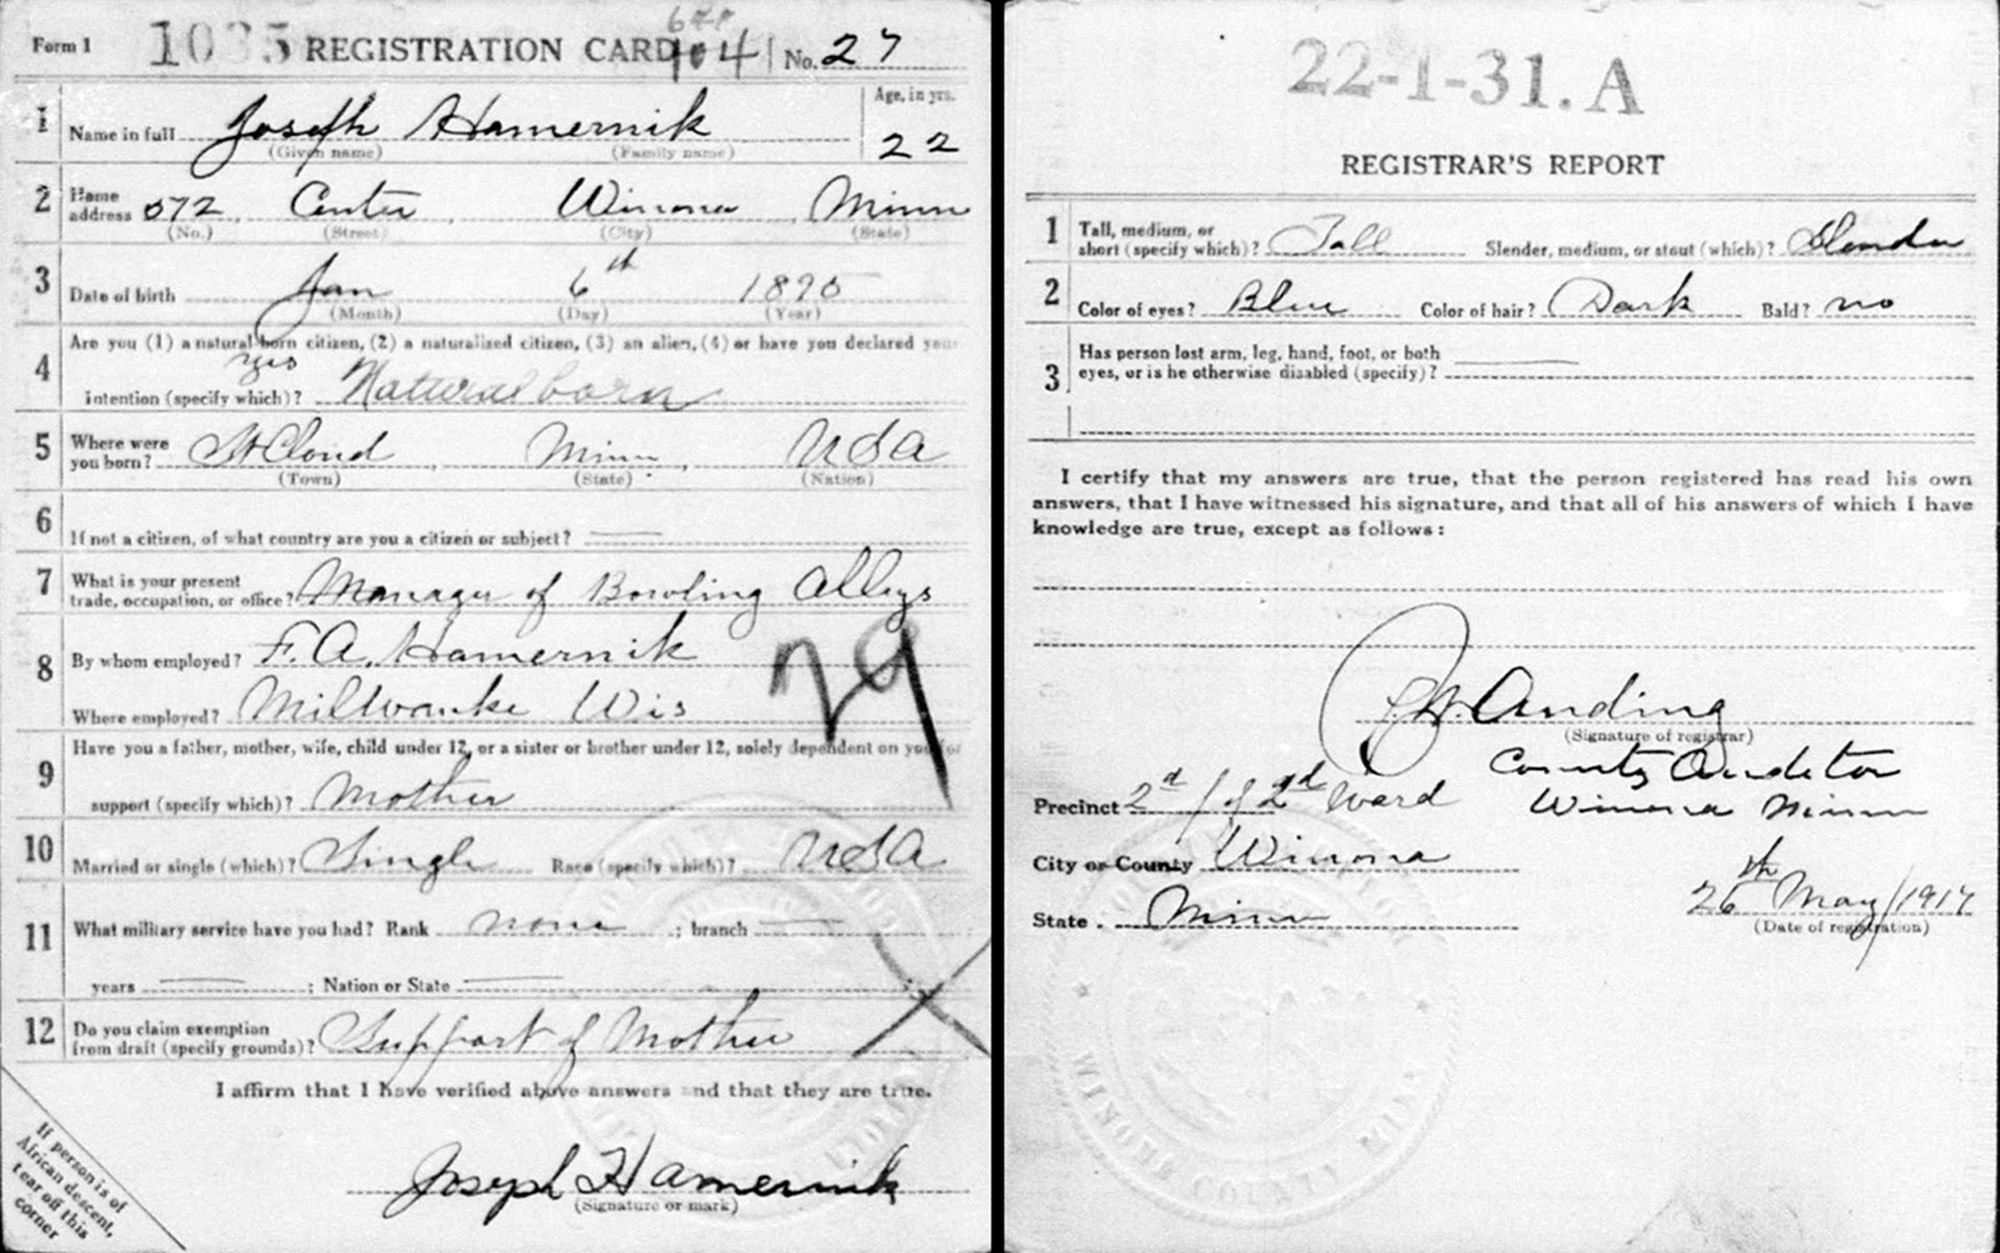 Form 1 1035 REGISTRATION CARD 1041 No. 27
1 Name in full Joseph Hamernik Age, in yrs.
(Given name) (Family name) 22
2 Home address 572 Center Winona Minn
(No.) (Street) (City) (State)
3 Date of birth Jan 6th 1895
(Month) (Day) (Year)
4 Are you (1) a natural born citizen, (2) a naturalized citizen, (3) an alien, (4) or have you declared your
yes
intention (specify which)? Natural born
5 Where were you born? St Cloud Minn USA
(Town) (State) (Nation)
6 If not a citizen, of what country are you a citizen or subject?
7 What is your present trade, occupation, or office? Manager of Bowling Alleys
8 By whom employed? F. A. Hamernik
Where employed? Milwauke Wis
29
9 Have you a father, mother, wife, child under 12, or a sister or brother under 12, solely dependent on you for
support (specify which)? Mother
10 Married or single (which)? Single Race (specify which)? USA
11 What military service have you had? Rank none ; branch
years ; Nation or State
12 Do you claim exemption from draft (specify grounds)? Support of Mother
I affirm that I have verified above answers and that they are true.
Joseph Hamernik
(Signature or mark)
If person is of
African descent,
tear off this
corner
22-1-31. A
REGISTRAR'S REPORT
1 Tall, medium, or short (specify which)? Tall Slender, medium, or stout (which)? Slender
2 Color of eyes? Blue Color of hair? Dark Bald? no
3 Has person lost arm, leg, hand, foot, or both
eyes, or is he otherwise disabled (specify)?
I certify that my answers are true, that the person registered has read his own
answers, that I have witnessed his signature, and that all of his answers of which I have
knowledge are true, except as follows:
Anding
(Signature of registrar)
County Auditor
Precinct 2d / of 2nd Ward Winona Minn
City or County Winona
26th May/1917
State . Minn
(Date of registration)
WINONA COUNTY MINN